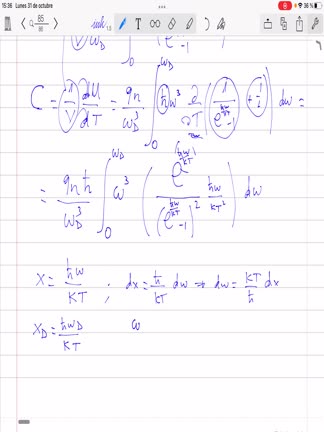 15:36 Lunes 31 de octubre
36 %
85
86
V ω_D^3 ∫_0 (e -1)
C = (1/V) dU/dT = 9n/ω_D^3 ∫_0^{ω_D} ħω^3 ∂/∂T (1/(e^{ħω/KT} -1) + 1/2) dω =
= 9nħ/ω_D^3 ∫_0^{ω_D} ω^3 (e^{ħω/KT}/(e^{ħω/KT} -1)^2 ħω/KT^2) dω
X = ħω/KT ; dx = ħ/KT dω ⇒ dω = KT/ħ dx
X_D = ħω_D/KT ω